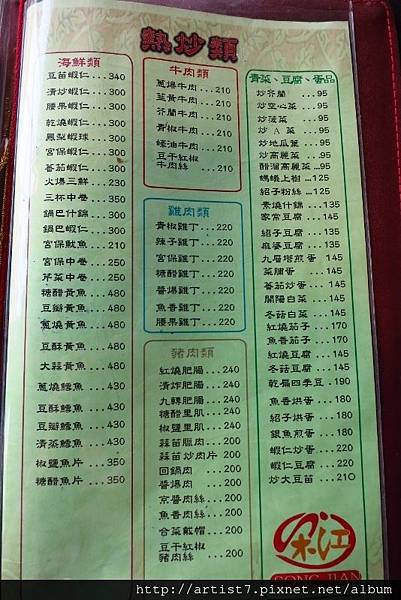 熱炒類
海鮮類
豆苗蝦仁...340
清炒蝦仁...300
腰果蝦仁...300
乾燒蝦仁...300
鳳梨蝦球...300
宮保蝦仁...300
番茄蝦仁...300
火爆三鮮...230
三杯中卷...350
鍋巴什錦...300
鍋巴蝦仁...300
宮保魷魚...210
宮保中卷...250
芹菜中卷...250
糖醋黃魚...480
豆瓣黃魚...480
蔥燒黃魚...480
豆酥黃魚...480
大蒜黃魚...480
蔥燒鱈魚...430
豆酥鱈魚...430
豆瓣鱈魚...430
清蒸鱈魚...430
椒鹽魚片...350
糖醋魚片...350
牛肉類
蔥爆牛肉...210
韮黃牛肉...210
芥蘭牛肉...210
青椒牛肉...210
蠔油牛肉...210
豆干紅椒
牛肉絲...210
雞肉類
青椒雞丁...220
辣子雞丁...220
宮保雞丁...220
糖醋雞丁...220
醬爆雞丁...220
魚香雞丁...220
腰果雞丁...220
豬肉類
紅燒肥腸...240
清炸肥腸...240
九轉肥腸...240
糖醋里肌...200
椒鹽里肌...200
蒜苗臘肉...200
蒜苗炒肉片...200
回鍋肉...200
醬爆肉...200
京醬肉絲...200
魚香肉絲...200
合菜戴帽...200
豆干紅椒
豬肉絲...200
青菜、豆腐、蛋品
炒芥蘭...95
炒空心菜...95
炒菠菜...95
炒A菜...95
炒地瓜葉...95
炒高麗菜...95
醋溜高麗菜...95
螞蟻上樹...125
紹子粉絲...125
素燒什錦...135
家常豆腐...135
紹子豆腐...145
麻婆豆腐...145
九層塔煎蛋...145
菜脯蛋...145
番茄炒蛋...145
開陽白菜...145
冬菇白菜...145
紅燒茄子...170
魚香茄子...170
紅燒豆腐...145
冬菇豆腐...145
乾扁四季豆...190
魚香烘蛋...180
紹子烘蛋...180
銀魚煎蛋...180
蝦仁炒蛋...220
蝦仁豆腐...220
炒大豆苗...210
松江
SONG JIAN
http://artist7.pixnet.net/album